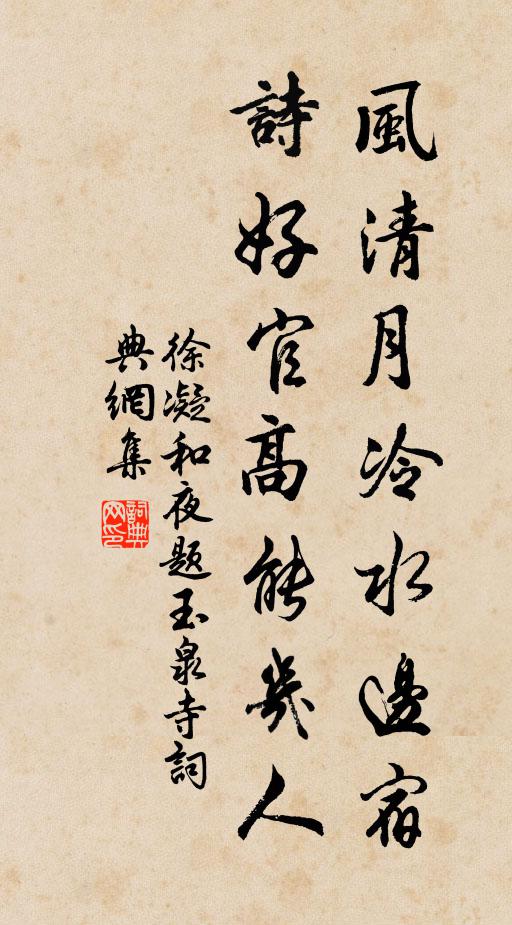 風清月冷水邊宿
詩好官高能幾人
徐凝和夜題玉泉寺詞
典網集
詞典
网印